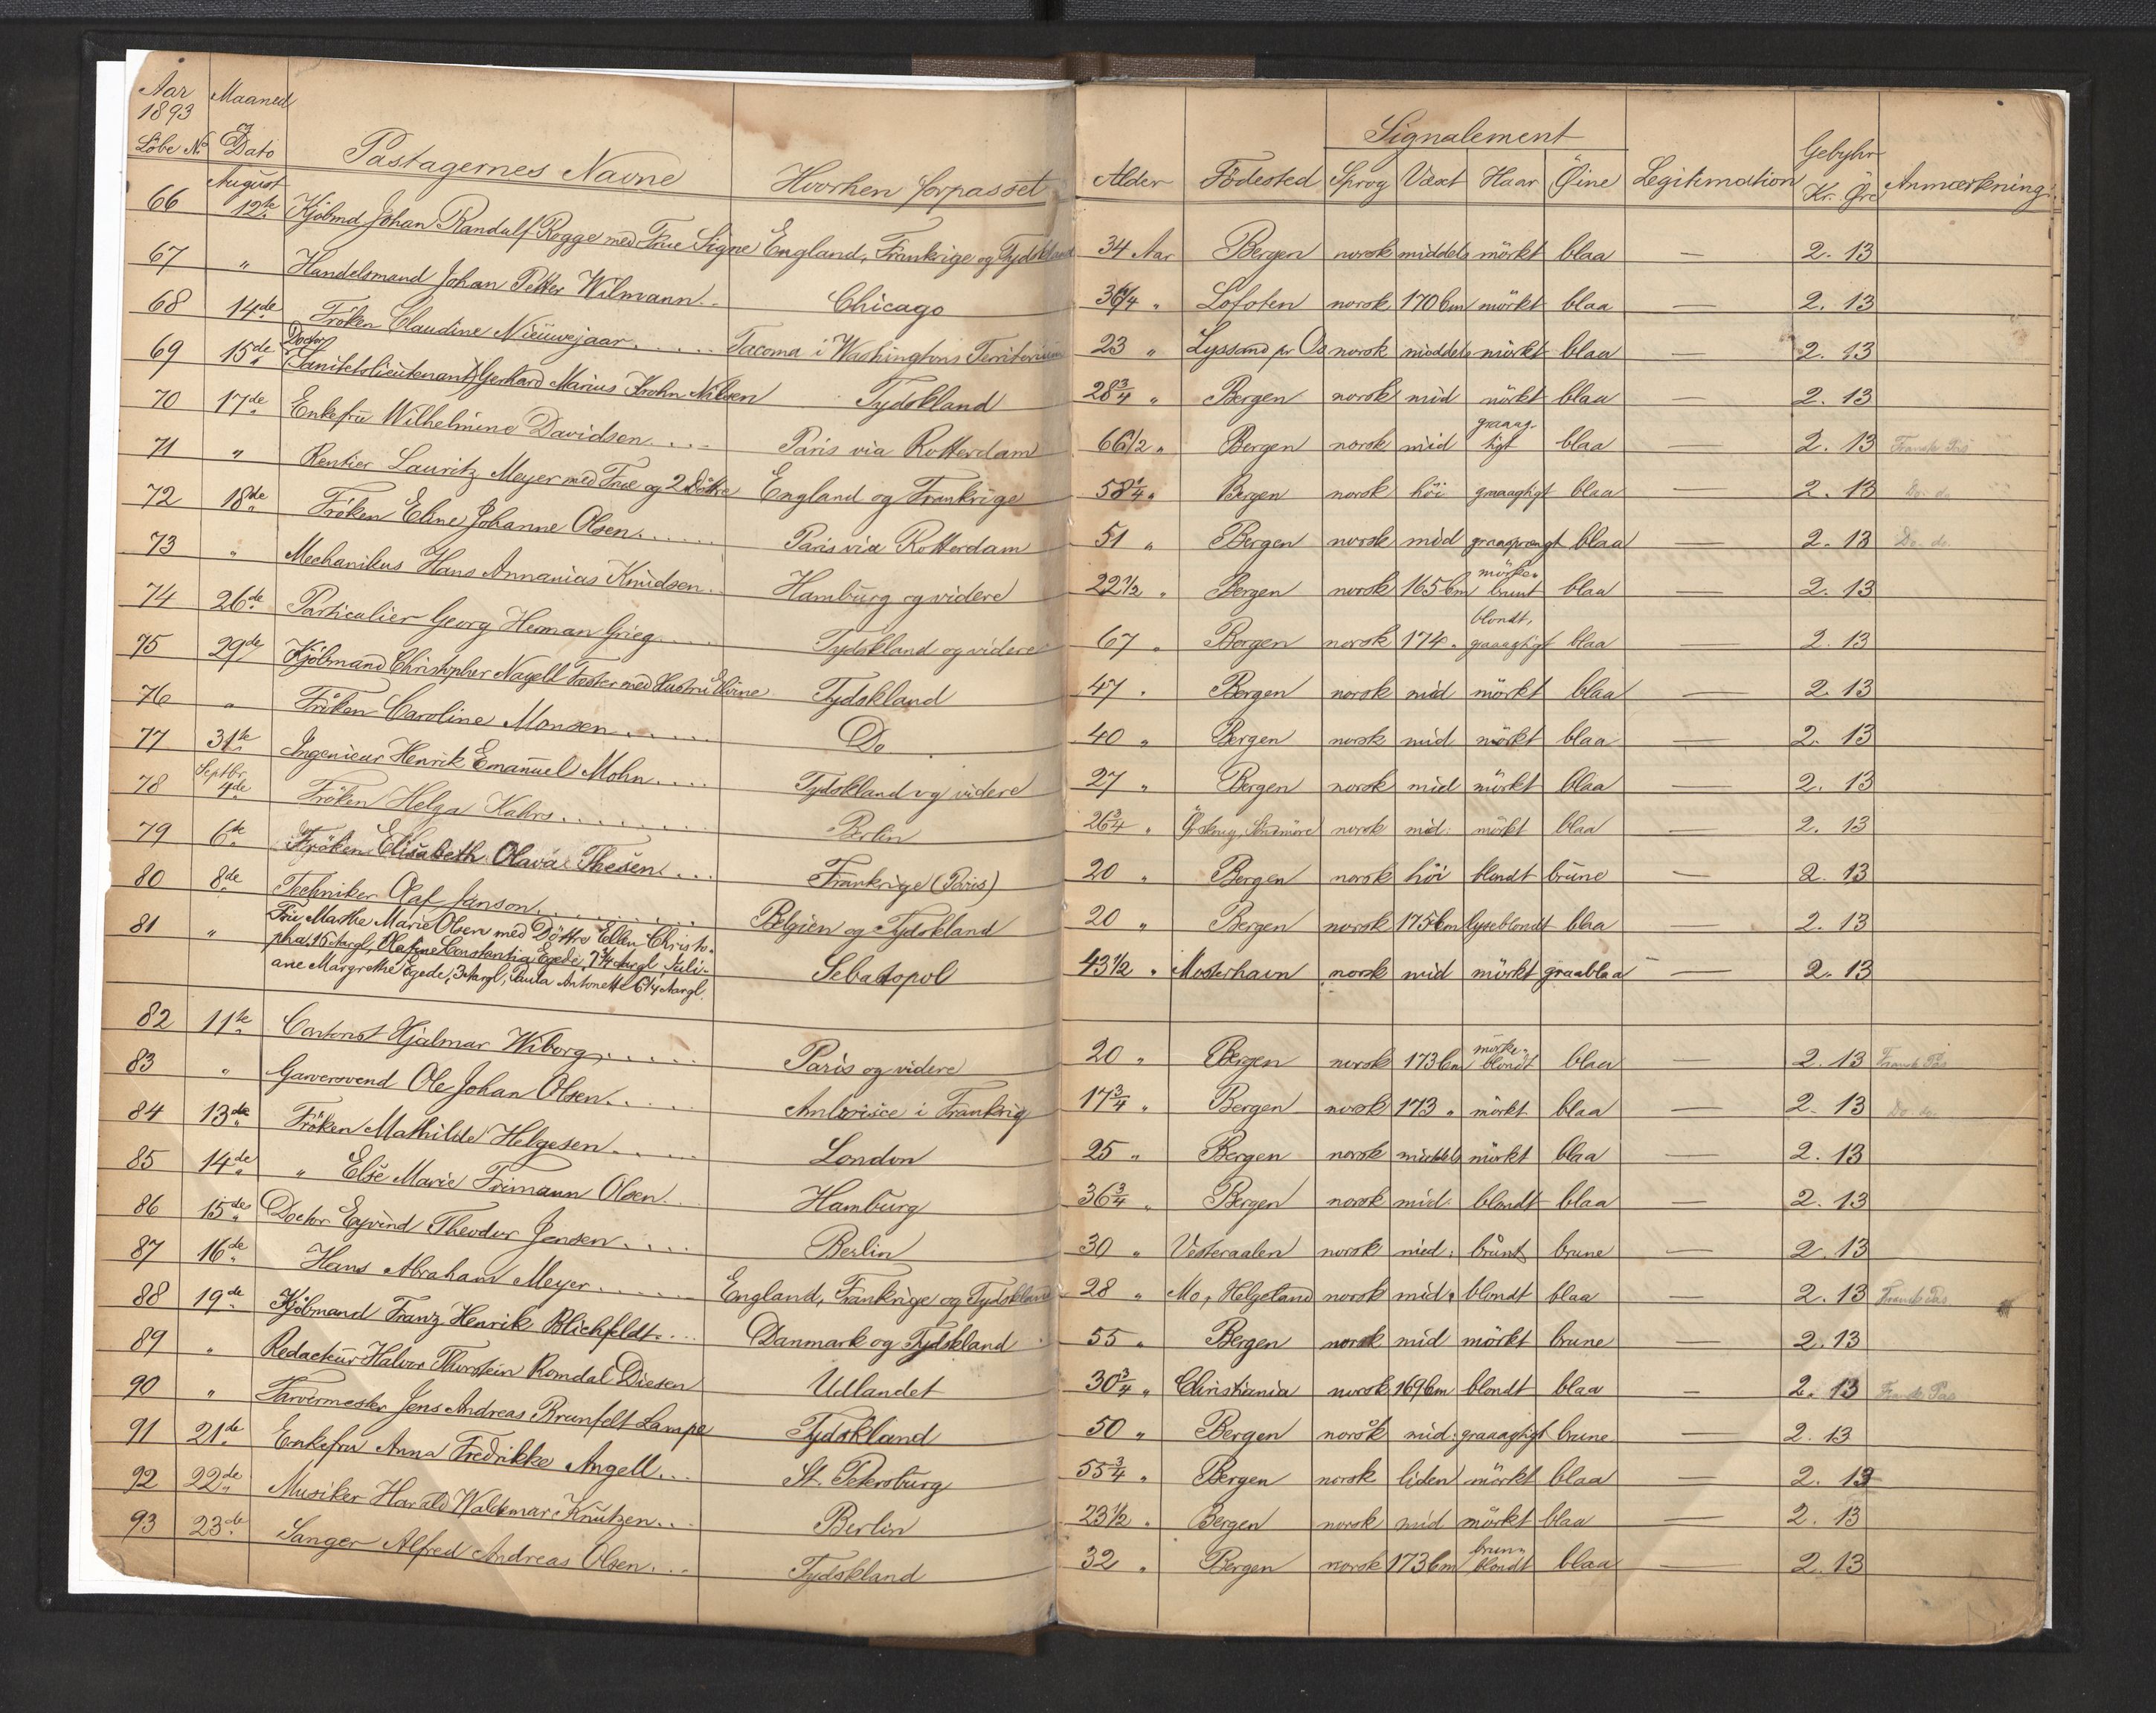 Aar Maaned
1893 &
Löbe No. Dato Pastagernes Navne Hvorhen forpasset Alder Födested Signalement Sprog Væxt Haar Öine Legitimation Gebyhr Kr. Öre Anmærkning.
August
66 12te Kjöbmd Johan Randulf Rogge med Frue Signe England, Frankrige og Tydskland 34 Aar Bergen norsk middels mörkt blaa — 2. 13
67 " Handelsmand Johan Petter Wilmann.. Chicago 36 1/4 " Lofoten norsk 170 Cm mörkt blaa — 2. 13
68 14de Fröken Claudine Nieuwejaar..... Tacoma i Washingtons Territorium 23 " Lyssand pr Os norsk middels mörkt blaa — 2. 13
69 15de Doctor (Sanitetslieutenant) Gerhard Marius Krohn Nilsen Tydskland 28 3/4 " Bergen norsk mid mörkt blaa — 2. 13
70 17de Enkefru Wilhelmine Davidsen.... Paris via Rotterdam 66 1/2 " Bergen norsk mid graaagtigt blaa — 2. 13 Fransk Pas
71 " Rentier Lauritz Meyer med Frue og 2 Döttre England og Frankrige 58 1/4 " Bergen norsk höi graaagtigt blaa — 2. 13 Do. do.
72 18de Fröken Eline Johanne Olsen...... Paris via Rotterdam 51 " Bergen norsk mid graasprængt blaa — 2. 13 Do. do.
73 " Mechanikus Hans Annanias Knudsen.. Hamburg og videre 22 1/2 " Bergen norsk 165 Cm mörkebrunt blaa — 2. 13
74 26de Particulier Georg Herman Grieg..... Tydskland og videre 67 " Bergen norsk 174 " blondt, graaagtigt blaa — 2. 13
75 29de Kjöbmand Christopher Nagell Faster med Hustru Elvine Tydskland 47 " Bergen norsk mid mörkt blaa — 2. 13
76 " Fröken Caroline Monsen...... Do 40 " Bergen norsk mid mörkt blaa — 2. 13
77 31te Ingenieur Henrik Emanuel Mohn.... Tydskland og videre 27 " Bergen norsk mid mörkt blaa — 2. 13
Septbr.
78 4de Fröken Helga Kahrs........ Berlin 26 3/4 " Örskoug, Söndmöre norsk mid. mörkt blaa — 2. 13
79 6te Fröken Elisabeth Olava Thesen... Frankrige (Paris) 20 " Bergen norsk höi blondt brune — 2. 13
80 8de Techniker Olaf Janson......... Belgien og Tydskland 20 " Bergen norsk 175 Cm lyseblondt blaa — 2. 13
81 " Fru Marthe Marie Olsen med Döttre Ellen Christo-
pha 15 Aargl, Olafine Constantia Egede, 7 1/4 Aargl, Juli-
ane Margrethe Egede, 3 Aargl, Paula Antonette 6 1/4 Aargl. Sebastopol 43 1/2 " Mosterhavn norsk mid mörkt graablaa — 2. 13
82 11te Contorist Hjalmar Wiborg...... Paris og videre 20 " Bergen norsk 173 Cm mörkeblondt blaa — 2. 13 Fransk Pas
83 " Garversvend Ole Johan Olsen..... i Frankrig 17 3/4 " Bergen norsk 173 " mörkt blaa — 2. 13 Do do.
84 13de Fröken Mathilde Helgesen..... London 25 " Bergen norsk middels mörkt blaa — 2. 13
85 14de " Else Marie Frimann Olsen... Hamburg 36 3/4 " Bergen norsk mid. blondt blaa — 2. 13
86 15de Doctor Eyvind Theodor Jensen.... Berlin 30 " Vesteraalen norsk mid. brunt brune — 2. 13
87 16de Hans Abraham Meyer...... England, Frankrige og Tydskland 28 " Mo, Helgeland norsk mid. blondt blaa — 2. 13 Fransk Pas
88 19de Kjöbmand Franz Henrik Blichfeldt.... Danmark og Tydskland 55 " Bergen norsk mid mörkt brune — 2. 13
89 " Redacteur Halvor Thorstein Romdal Diesen Udlandet 30 3/4 " Christiania norsk 169 Cm blondt blaa — 2. 13 Fransk Pas
90 " Farvermester Jens Andreas Brunfelt Lampe Tydskland 50 " Bergen norsk mid. graaagtigt brune — 2. 13
91 21de Enkefru Anna Fredrikke Angell... St. Petersburg 55 3/4 " Bergen norsk liden mörkt blaa — 2. 13
92 22de Musiker Harald Waldemar Knutzen... Berlin 23 1/2 " Bergen norsk mid mörkt blaa — 2. 13
93 23de Sanger Alfred Andreas Olsen... Tydskland 32 " Bergen norsk 173 Cm brunblondt blaa — 2. 13